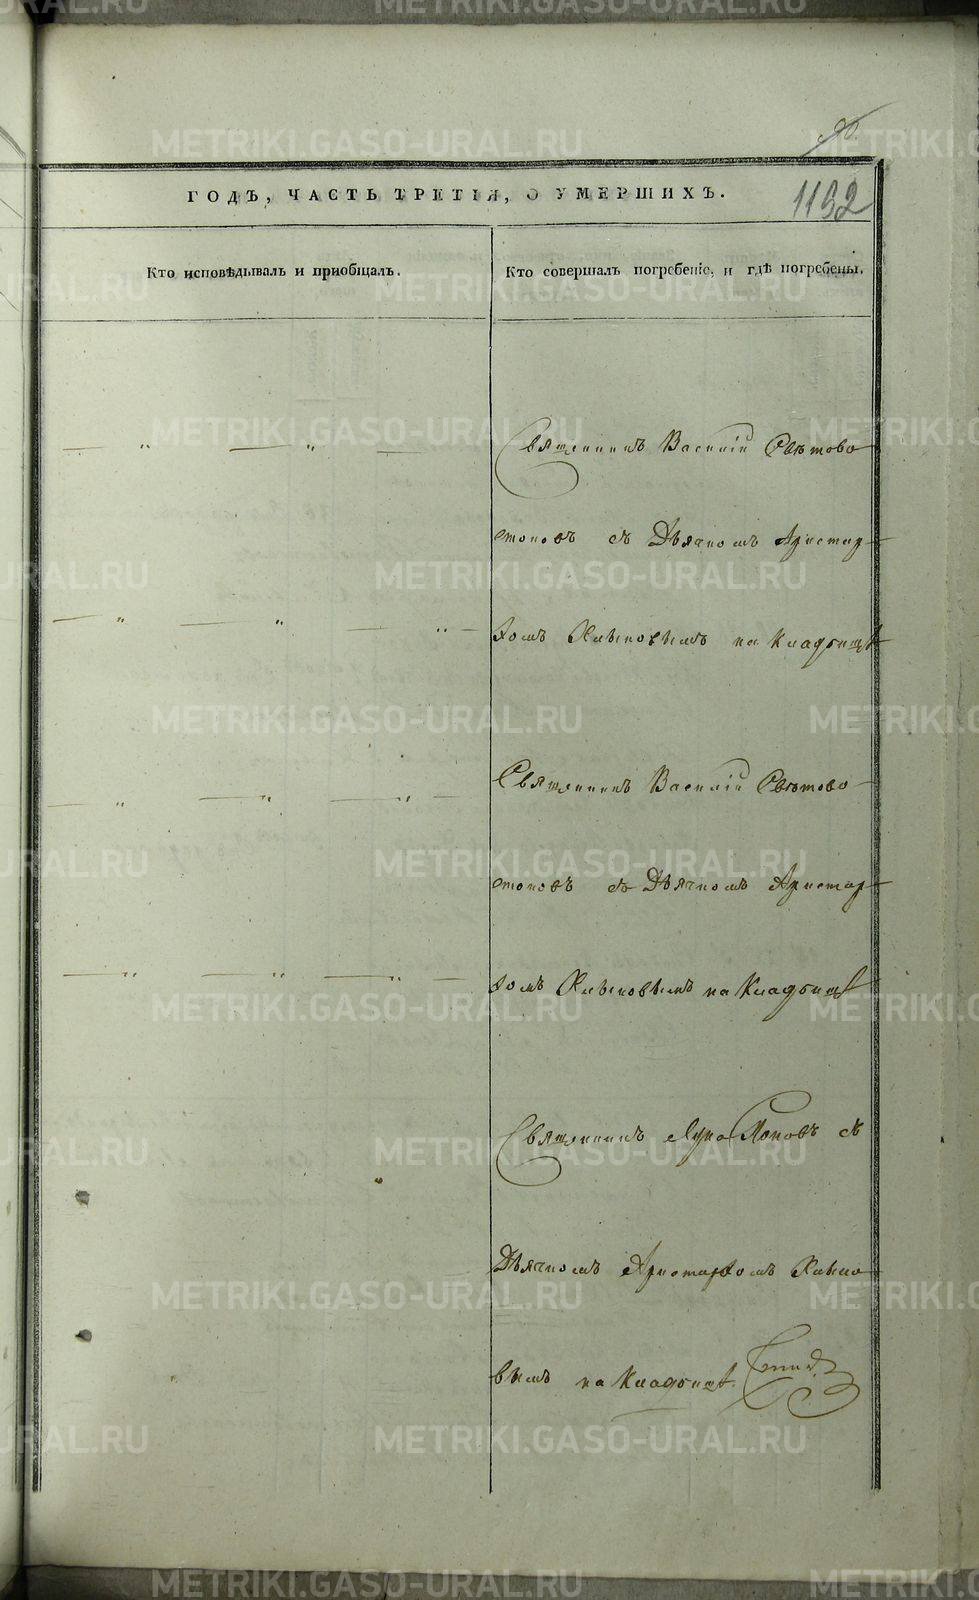 ГОДЪ, ЧАСТЬ ТРЕТІЯ, О УМЕРШИХЪ.
1192
Кто исповѣдывалъ и приобщалъ.
Кто совершалъ погребеніе, и гдѣ погребены.
Священникъ Василій Свѣтово
стоковъ съ Дьячкомъ Аристар
хомъ Хлыновымъ на Кладбищѣ
Священникъ Василій Свѣтово
стоковъ съ Дьячкомъ Аристар
хомъ Хлыновымъ на Кладбищѣ
Священникъ Лука Поповъ съ
Дьячкомъ Аристархомъ Хлыно
вымъ на Кладбищѣ.
METRIKI.GASO-URAL.RU